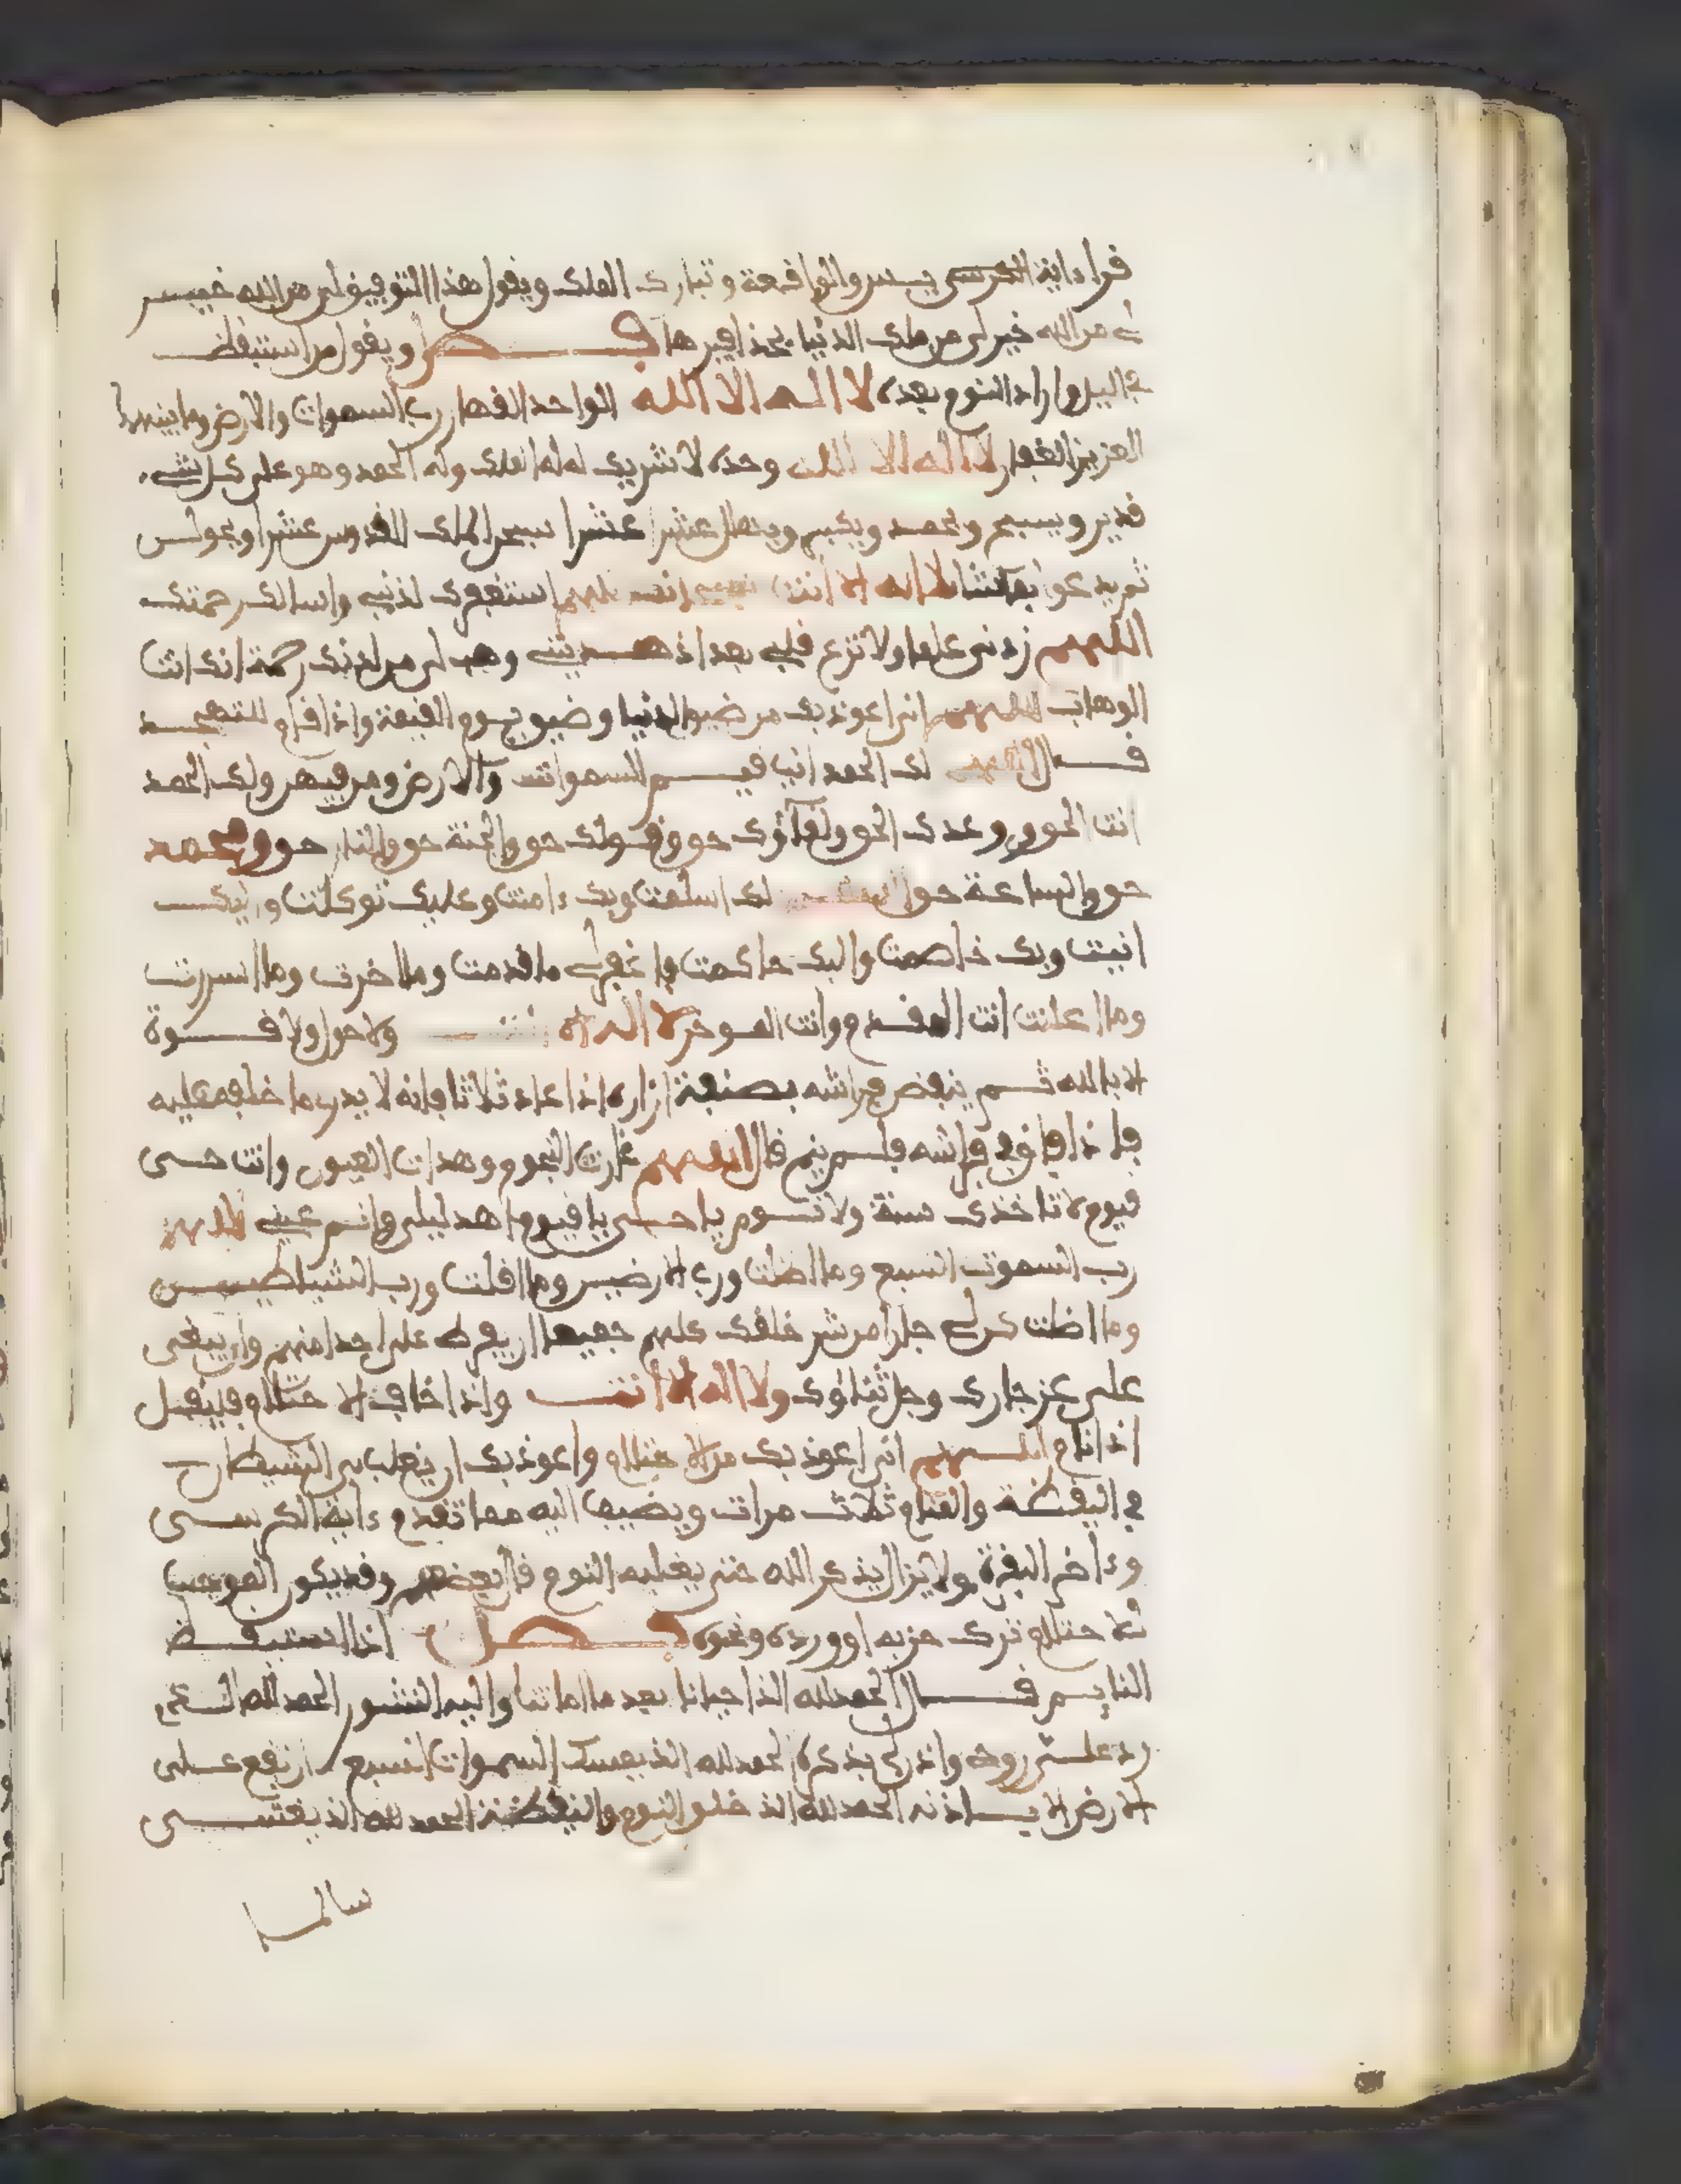 قرا ءاية الكرسى يس والواقعة وتبارك الملك ويقول هذا التوفيق لى من الله خير
من الله خير لى من ملك الدنيا بحذافيرها فصل ويقول من استيقظ
فى اليل واراد النوم بعده لا اله الا الله الواحد القهار رب السموات والارض وما بينهما
العزيز الغفار لا اله الا الله وحده لا شريك له له الملك وله الحمد وهو على كل شىء
قدير ويسبح ويحمد ويكبر ويهلل عشرا عشرا سبحن الملك القدوس عشرا
ثم يدعوا بما شا لا اله الا انت استغفرك لذنبى واسالك رحمتك
اللهم زدنى علما ولا تزغ قلبى بعد اذ هديتنى وهب لى من لدنك رحمة انك انت
الوهاب اللهم انى اعوذ بك من ضيق الدنيا وضيق يوم القيمة واذا قام للتهجد
قال اللهم لك الحمد انت قيم السموات والارض ومن فيهن ولك الحمد
انت الحق ووعدك الحق ولقاؤك حق وقولك حق والجنة حق والنار حق ومحمد
حق والساعة حق اللهم لك اسلمت وبك ءامنت وعليك توكلت واليك
انبت وبك خاصمت واليك حاكمت فاغفر لى ما قدمت وما اخرت وما اسررت
وما اعلنت انت المقدم وانت الموخر لا اله الا انت ولا حول ولا قوة
الا بالله ثم ينفض فراشه بصنفة ازاره اذا عاد ثلاثا فانه لا يدرى ما خلفه عليه
فاذا فراشه فلم ينم قال اللهم غارت النجوم وهدات العيون وانت حى
قيوم لا تاخذك سنة ولا نوم يا حى يا قيوم اهد ليلى وانم عينى اللهم
رب السموت السبع وما اظلت ورب الارضين وما اقلت ورب الشياطين
وما اضلت كن لى جارا من شر خلقك كلهم جميعا ان يفرط على احد منهم وان يبغى
على عز جارك وجل ثناؤك ولا اله الا انت واذا خاف الاحتلام فليقل
اذا نام اللهم انى اعوذ بك من الاحتلام واعوذ بك ان يلعب بى الشيطان
فى اليقظة والمنام ثلاث مرات ويضيف اليه مما تقدم ءاية الكرسى
وءاخر البقرة ولا يزال يذكر الله حتى يغلبه النوم قال بعضهم وقد يكون الموجب
للاحتلام ترك حزبه او ورده ونحوه فصل اذا استيقظ
النايم قال الحمد لله الذ احيانا بعد ما اماتنا واليه النشور الحمد لله الذى
رد على روحى واذن لى بذكره الحمد لله الذ يمسك السموات السبع ان تقع على
الارض الا باذنه الحمد لله الذ خلق النوم واليقظة الحمد لله الذ بعثنى
سالما